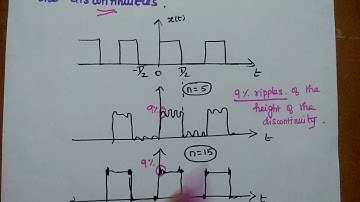 the discontinuities.
x(t)
-T/2 0 T/2 t
n=5
9% ripples of the
height of the
discontinuity.
9%
t
n=15
9%
t